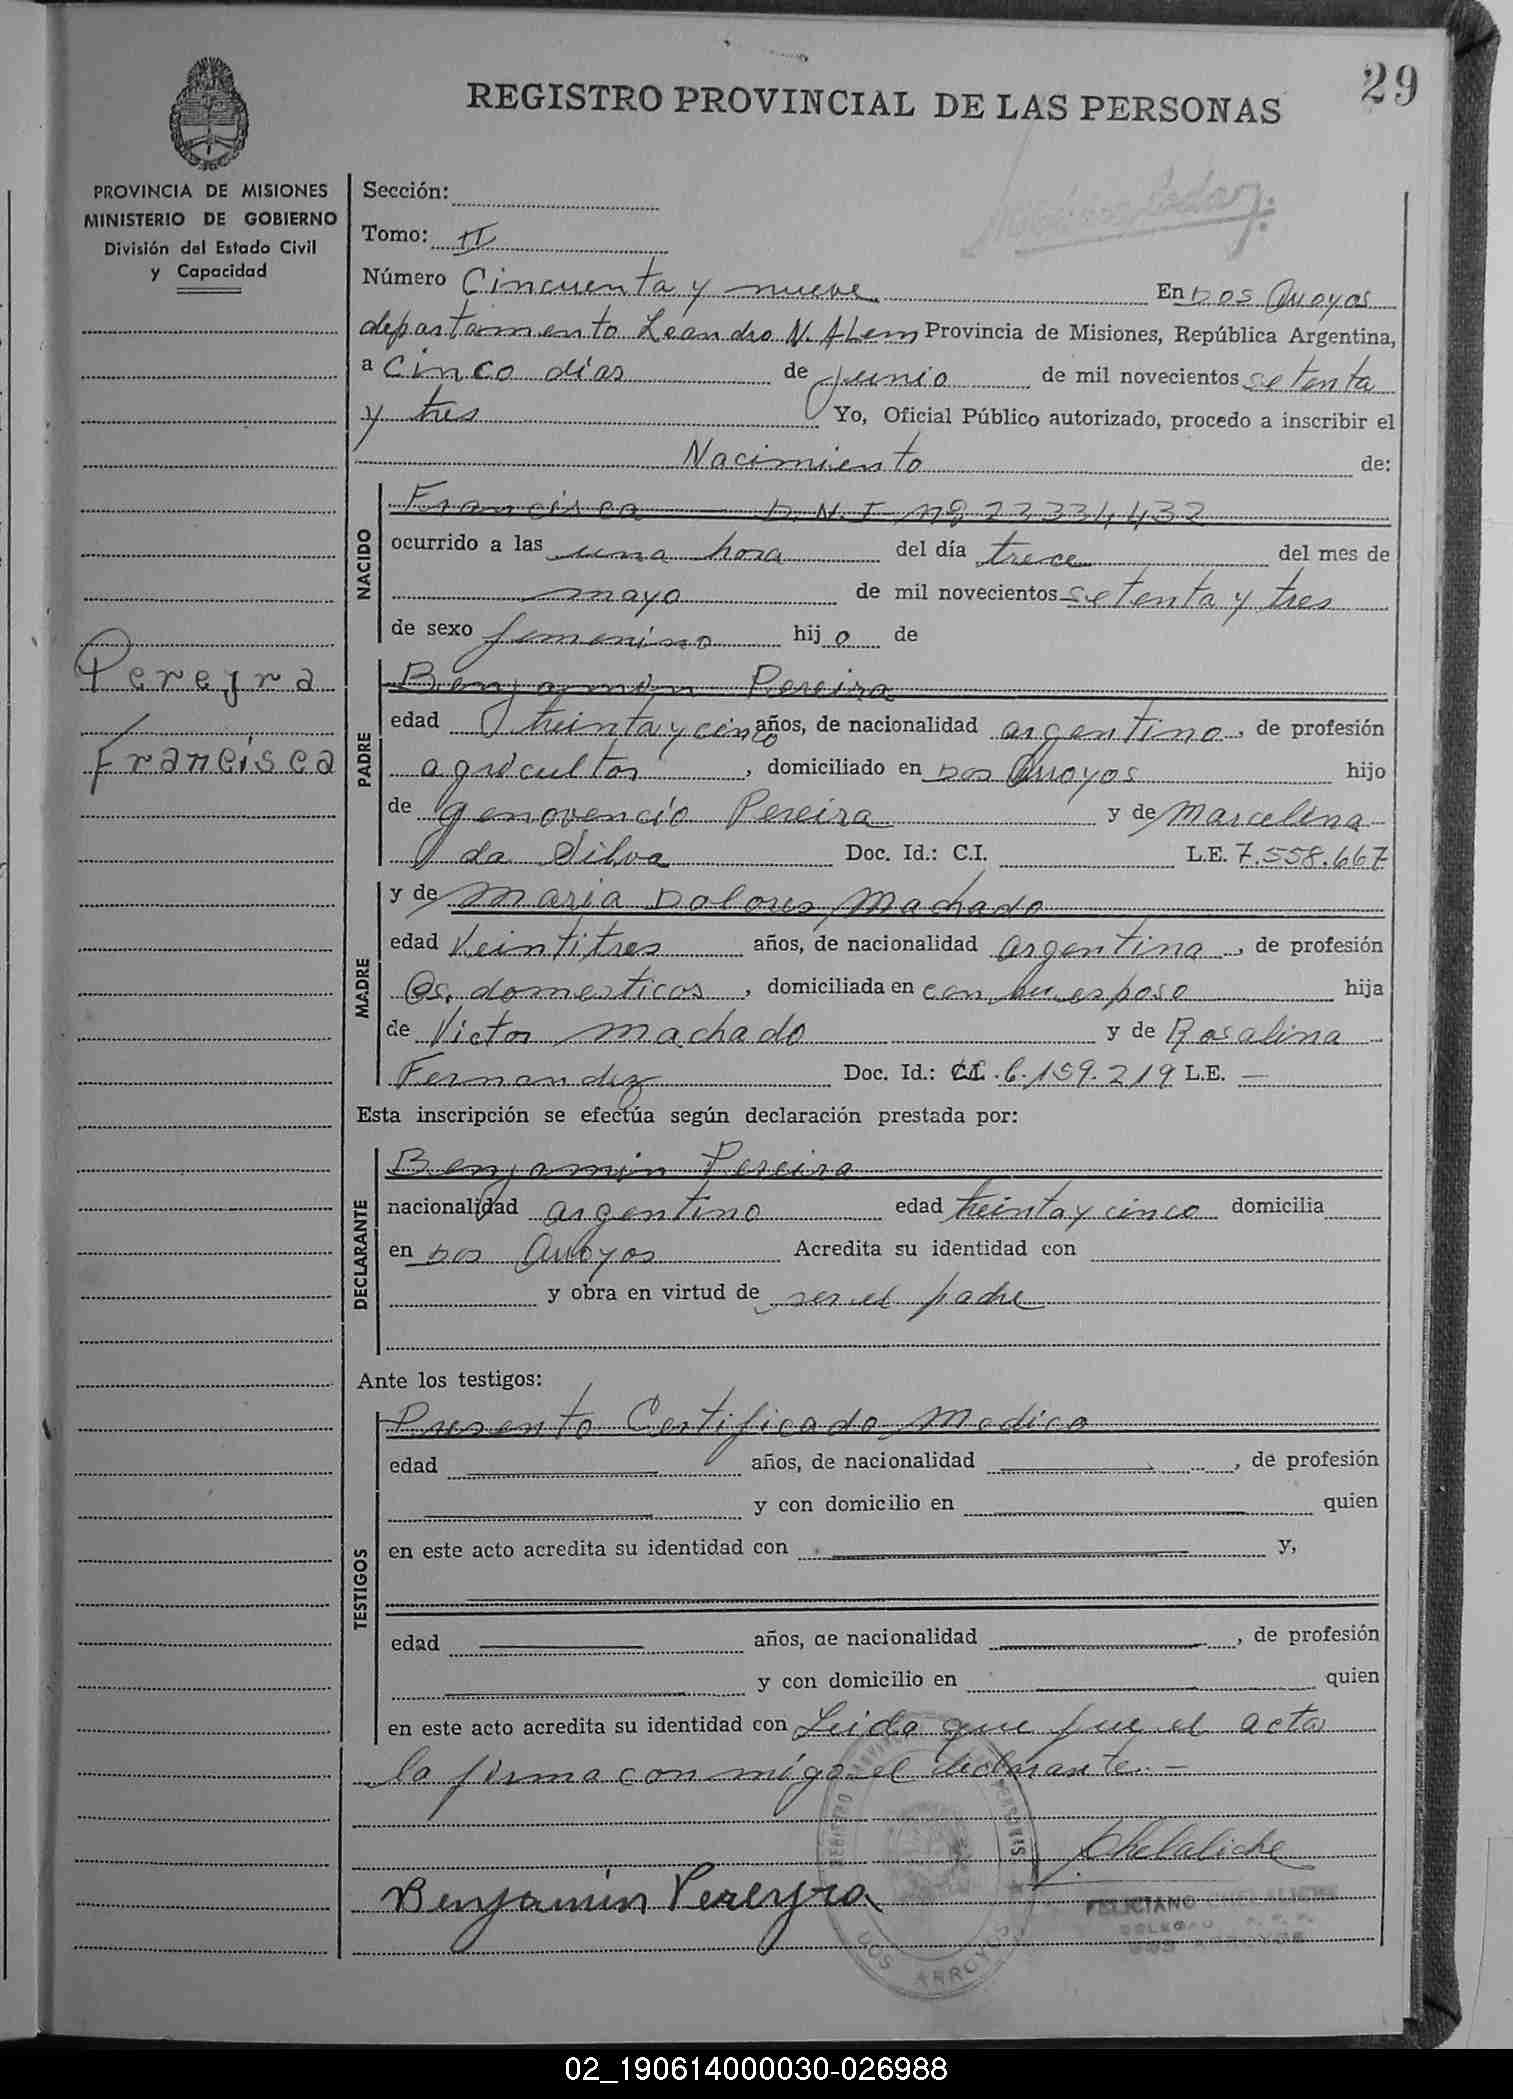 29
REGISTRO PROVINCIAL DE LAS PERSONAS
PROVINCIA DE MISIONES
MINISTERIO DE GOBIERNO
División del Estado Civil
y Capacidad
Pereyra
Francisca
Sección:
Tomo: II
Número Cincuenta y nueve En Dos Arroyos
departamento Leandro N. Alem Provincia de Misiones, República Argentina,
a Cinco días de junio de mil novecientos setenta
y tres Yo, Oficial Público autorizado, procedo a inscribir el
Nacimiento de:
NACIDO
Francisca D.N.I. Nº 23334432
ocurrido a las una hora del día trece del mes de
mayo de mil novecientos setenta y tres
de sexo femenino hij o de
PADRE
Benjamín Pereira
edad treinta y cinco años, de nacionalidad argentino, de profesión
agricultor, domiciliado en Dos Arroyos hijo
de Genovencio Pereira y de Marcelina
da Silva Doc. Id.: C.I. L.E. 7.558.667
MADRE
y de Maria Dolores Machado
edad Veintitres años, de nacionalidad argentina, de profesión
Qs. domesticos, domiciliada en con su esposo hija
de Victor Machado y de Rosalina
Fernandez Doc. Id.: 6.159.219 L.E. —
Esta inscripción se efectúa según declaración prestada por:
DECLARANTE
Benjamín Pereira
nacionalidad argentino edad treinta y cinco domicilia
en Dos Arroyos Acredita su identidad con
y obra en virtud de ser el padre
Ante los testigos:
TESTIGOS
Presento Certificado Medico
edad años, de nacionalidad , de profesión
y con domicilio en quien
en este acto acredita su identidad con y,
edad años, de nacionalidad , de profesión
y con domicilio en quien
en este acto acredita su identidad con Leida que fue el acta
la firma con migo el declarante. —
Chelaliche
Benjamín Pereyra
FELICIANO CHELALICHE
DOS ARROYOS
DOS ARROYOS
02_190614000030-026988